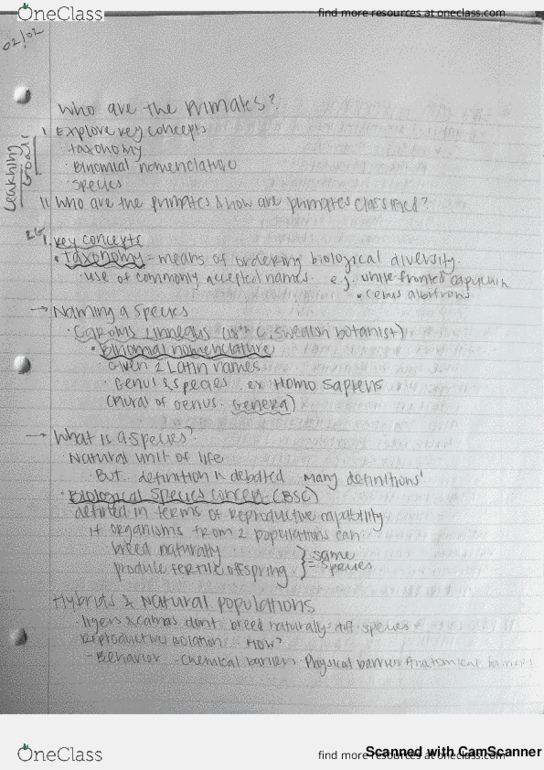 OneClass
find more resources at oneclass.com
02/02
Who are the Primates?
Learning Goals
I. Explore key concepts
· taxonomy
· Binomial nomenclature
· Species
II. Who are the primates & how are primates classified?
LG
1. Key concepts
· taxonomy = means of ordering biological diversity.
· use of commonly accepted names. e.g. white-fronted capuchin
· cebus albifrons
→ Naming a Species
· Linnaeus (18th C, Swedish botanist)
· Binomial nomenclature
Given 2 Latin names
· Genus & species. ex Homo Sapiens
(Plural of Genus: Genera)
→ What is a species?
· Natural unit of life
But definition is debated many definitions
· Biological Species Concept (BSC)
defined in terms of reproductive capability
If organisms from 2 populations can
breed naturally
produce fertile offspring } = same species
Hybrids & Natural populations
· ligers & camas dont breed naturally
· Reproductive isolation: How?
- Behavior - Chemical barrier - Physical barrier Anatomical
OneClass
find more resources at oneclass.com
Scanned with CamScanner